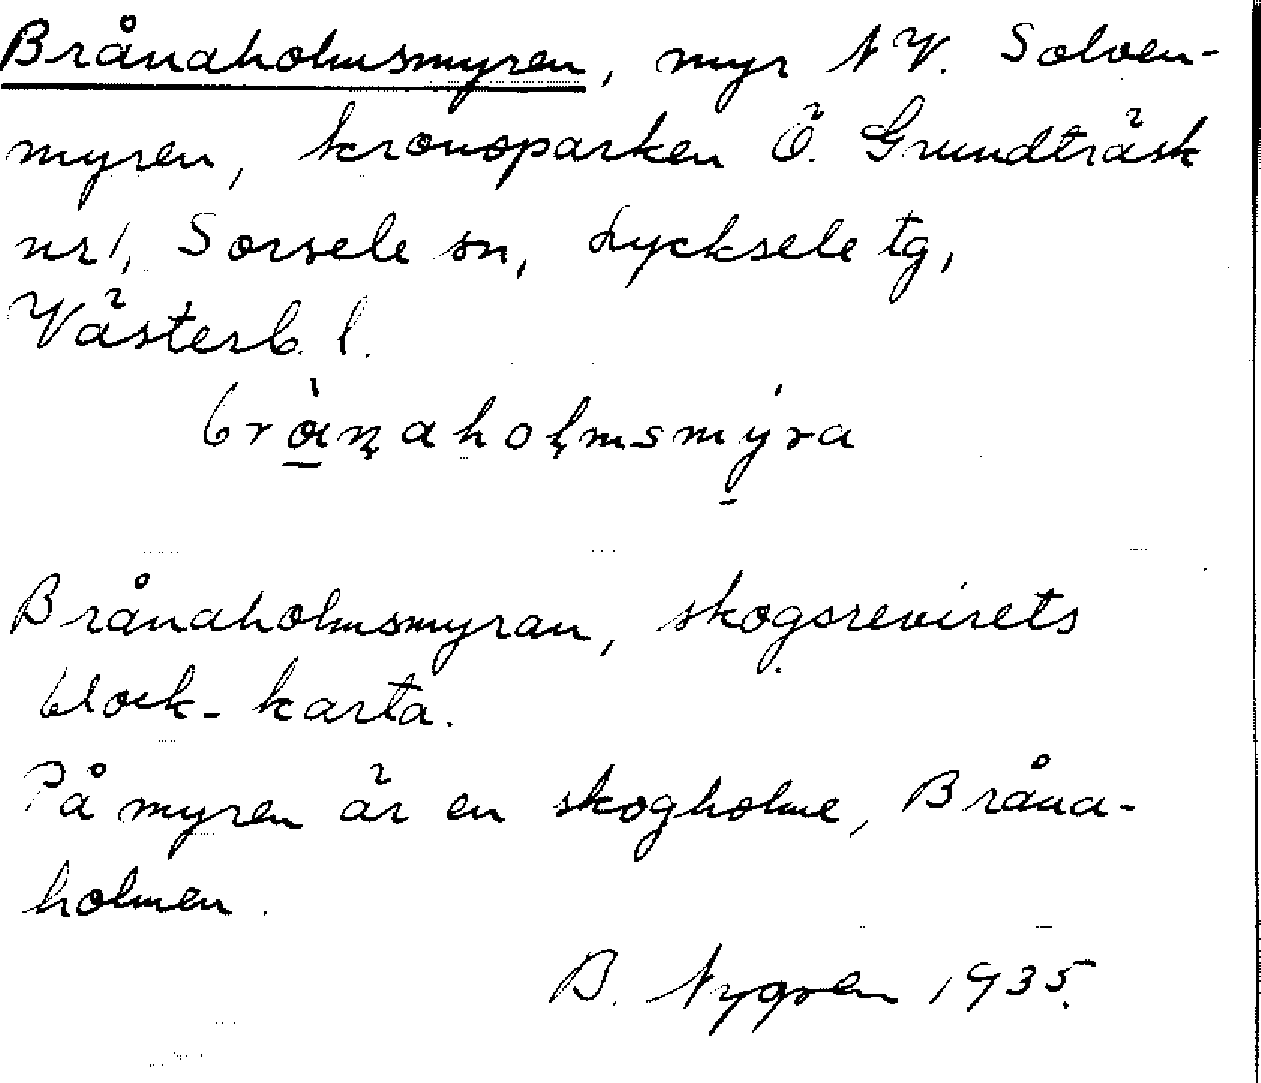 Brånaholmsmyren, myr NV. Solven-
myren, kronoparken Ö. Grundträsk
nr 1, Sorsele sn, Lycksele tg,
Västerb. l.
brånaholmsmýra
Brånaholmsmyran, skogsrevirets
block-karta.
På myren är en skogholme, Bråna-
holmen.
B. Nygren 1935.